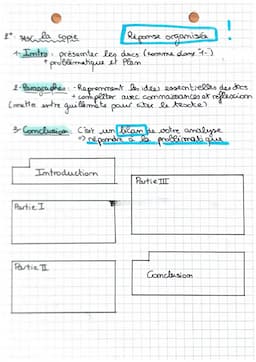 2° la copie Réponse organisée !
1- Intro : présenter les docs (comme dans 1-)
+ problématique et Plan
2- Paragraphes : - Reprennent les idées essentielles des docs
+ compléter avec connaissances et réflexion
(mettre entre guillemets pour citer le texte)
3- Conclusion : C'est un bilan de votre analyse
=> répondre à la problématique
Introduction
Partie III
Partie I
Partie II
Conclusion